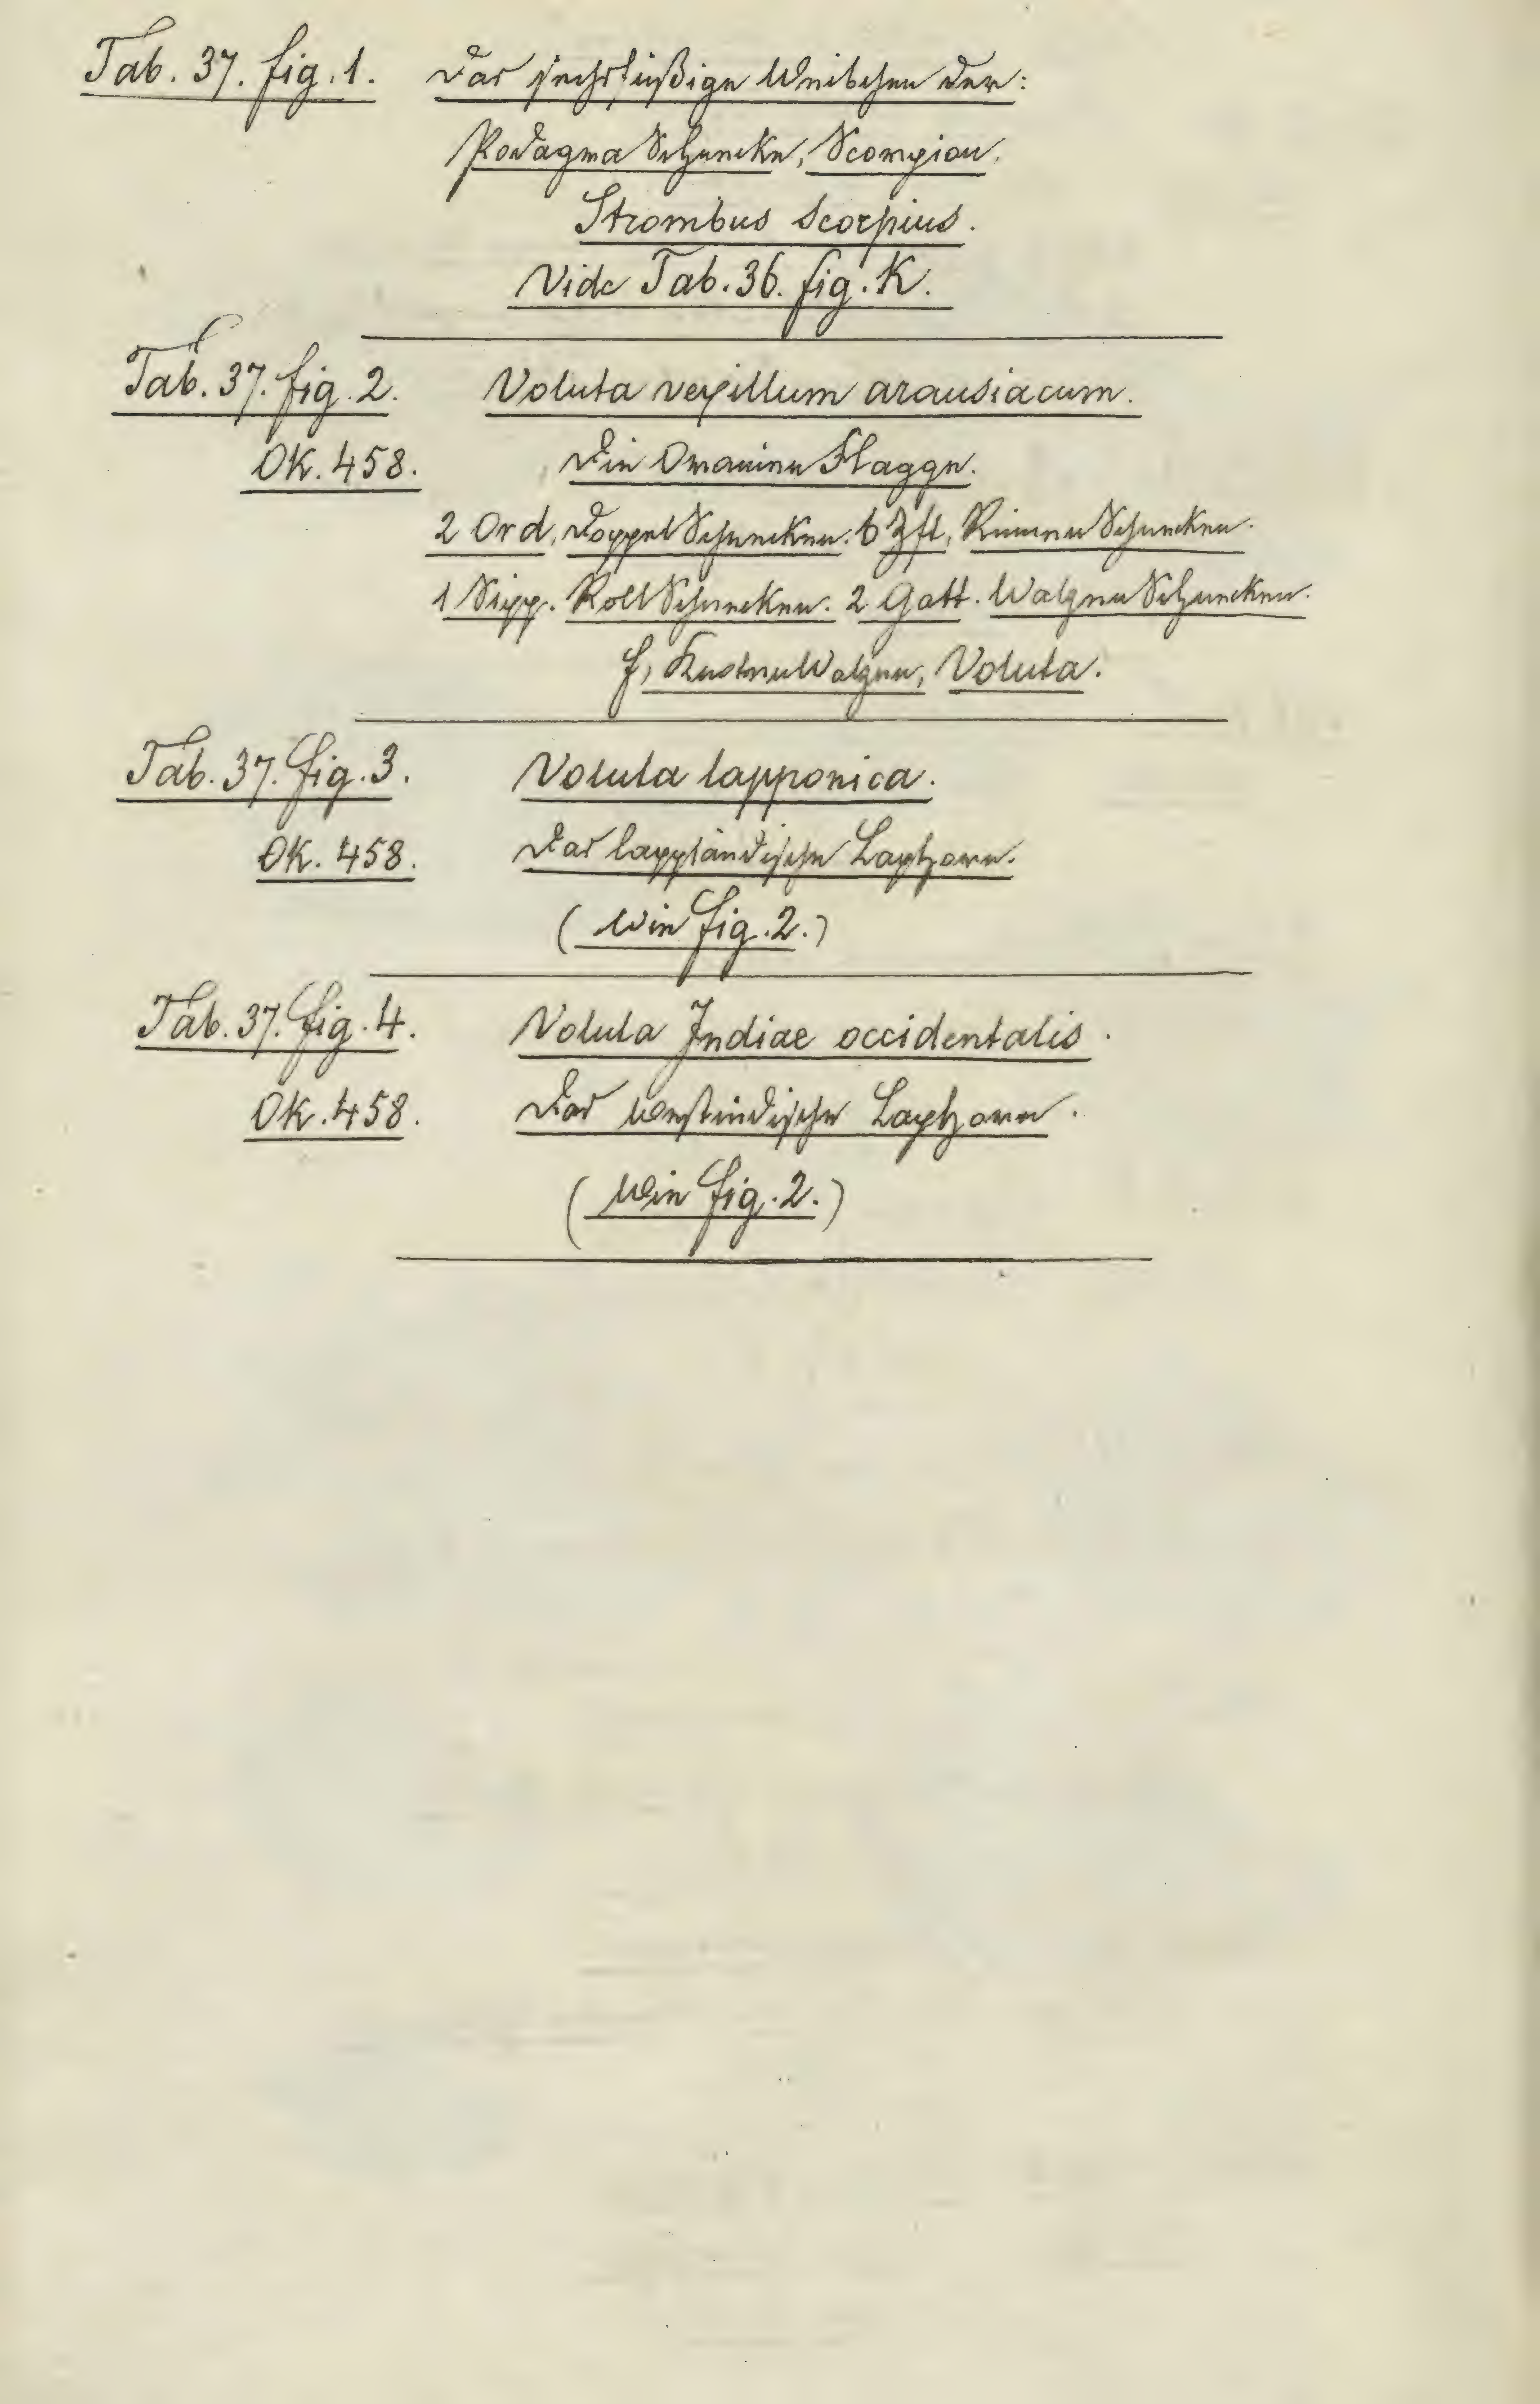 Tab. 37. fig. 1. Das sechsfüßige Weibchen der:
Podagra Schnecke, Scorpion.
Strombus Scorpius.
Vide Tab. 36. fig. K.
Tab. 37. fig. 2. Voluta vexillum arausiacum.
OK. 458. Die Oranien Flagge.
2 Ord, Doppel Schnecken. 6 Zft, Rinnen Schnecken.
1 Sipp. Roll Schnecken. 2 Gatt. Walzen Schnecken.
f, Küsten Walzen, Voluta.
Tab. 37. fig. 3. Voluta lapponica.
OK. 458. Das lappländische Laphorn.
(Wie fig. 2.)
Tab. 37. fig. 4. Voluta Indiae occidentalis.
OK. 458. Das westindische Laphorn.
(Wie fig. 2.)